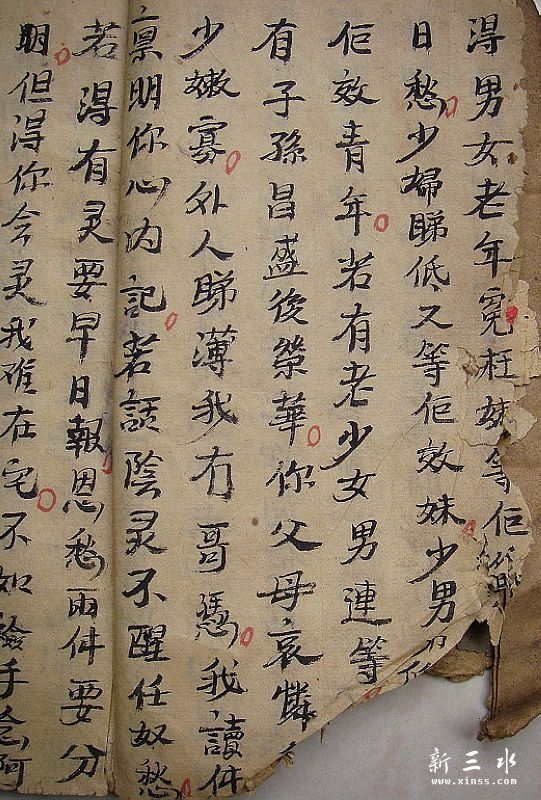 得男女老年寃枉妹等佢
日愁少婦睇低又等佢效妹少男
佢效青年若有老少女男連等
有子孫昌盛後榮華你父母哀憐
少嫩寡外人睇薄我冇哥憑我讀件
禀明你心内記若話陰灵不醒任奴愁
若得有灵要早日報恩愁両件要分
明但得你会灵我难在宅不如沴手念阿
新三水
www.xinss.com